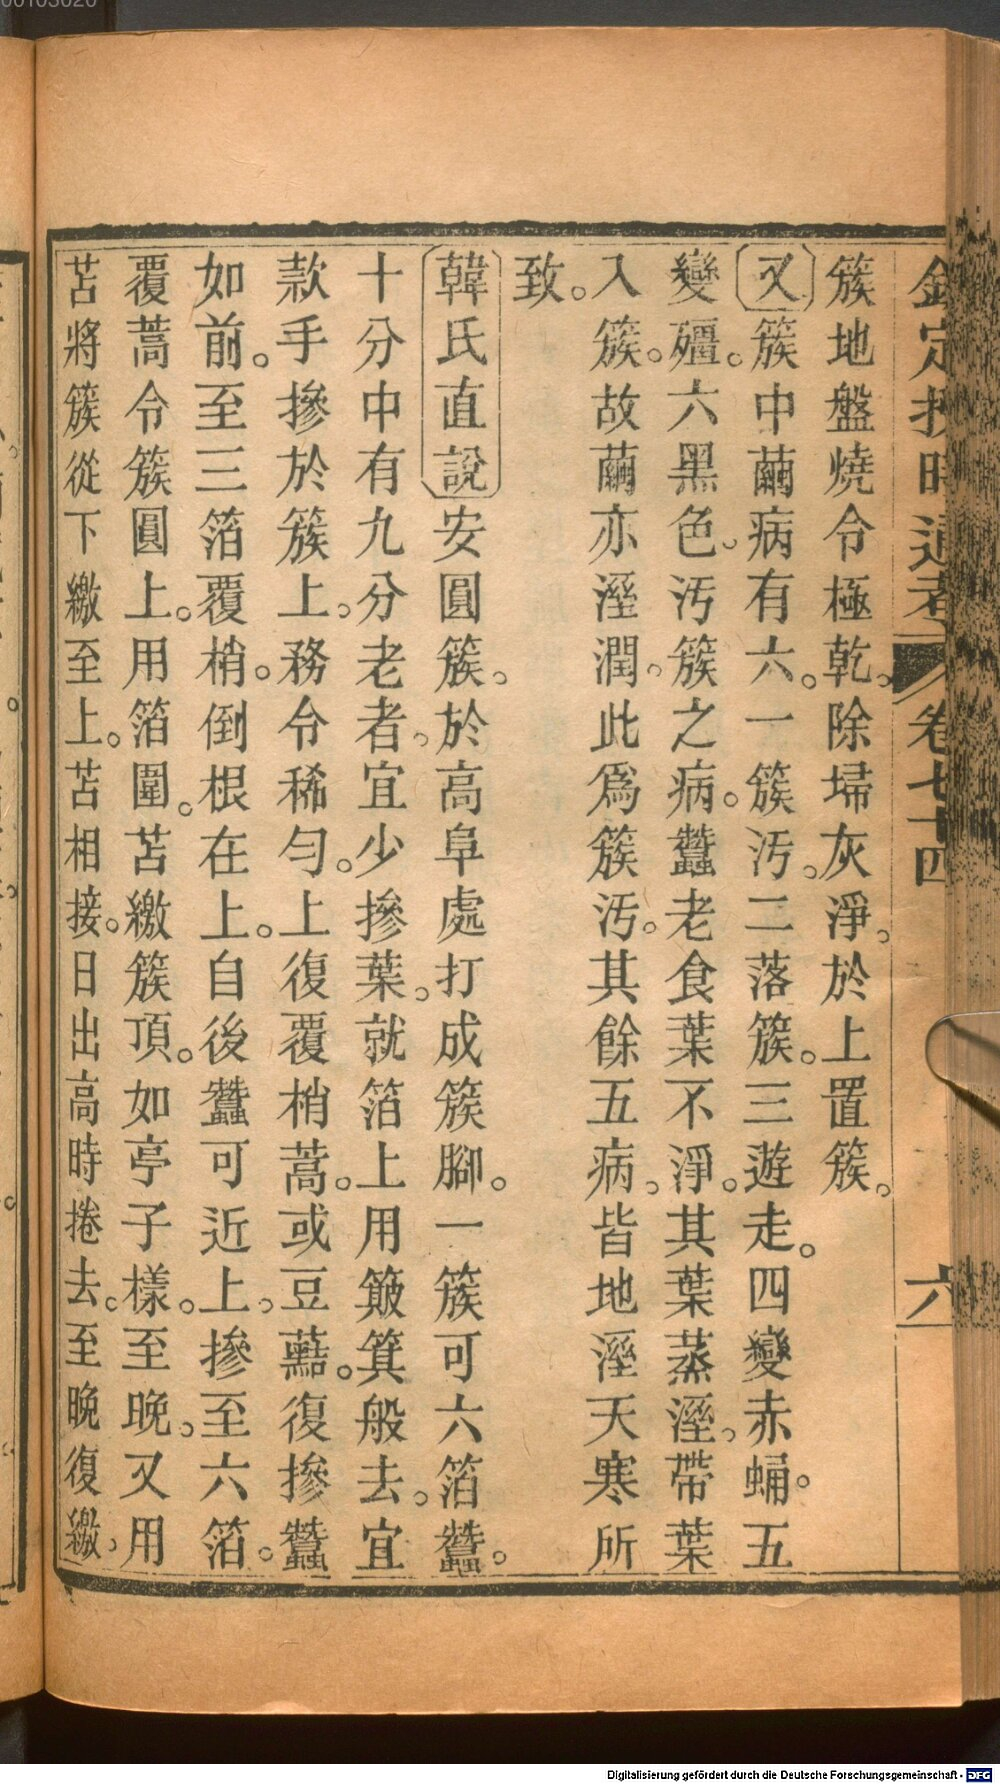 欽定授時通考 卷七十四 六
簇地盤燒令極乾。除埽灰淨。於上置簇。
又簇中繭病有六。一簇汚。二落簇。三遊走。四變赤蛹。五
變殭。六黑色。汚簇之病。蠶老食葉不淨。其葉蒸溼。帶葉
入簇。故繭亦溼潤。此爲簇汚。其餘五病。皆地溼天寒所
致。
韓氏直說安圓簇。於高阜處打成簇腳。一簇可六箔蠶。
十分中有九分老者。宜少摻葉。就箔上用簸箕般去。宜
款手摻於簇上。務令稀勻。上復覆梢蒿。或豆䕸。復摻蠶
如前。至三箔覆梢。倒根在上。自後蠶可近上。摻至六箔。
覆蒿令簇圓上。用箔圍。苫繳簇頂。如亭子樣。至晚。又用
苫將簇從下繳至上。苫相接。日出高時捲去。至晚復繳。
Digitalisierung gefördert durch die Deutsche Forschungsgemeinschaft - DFG